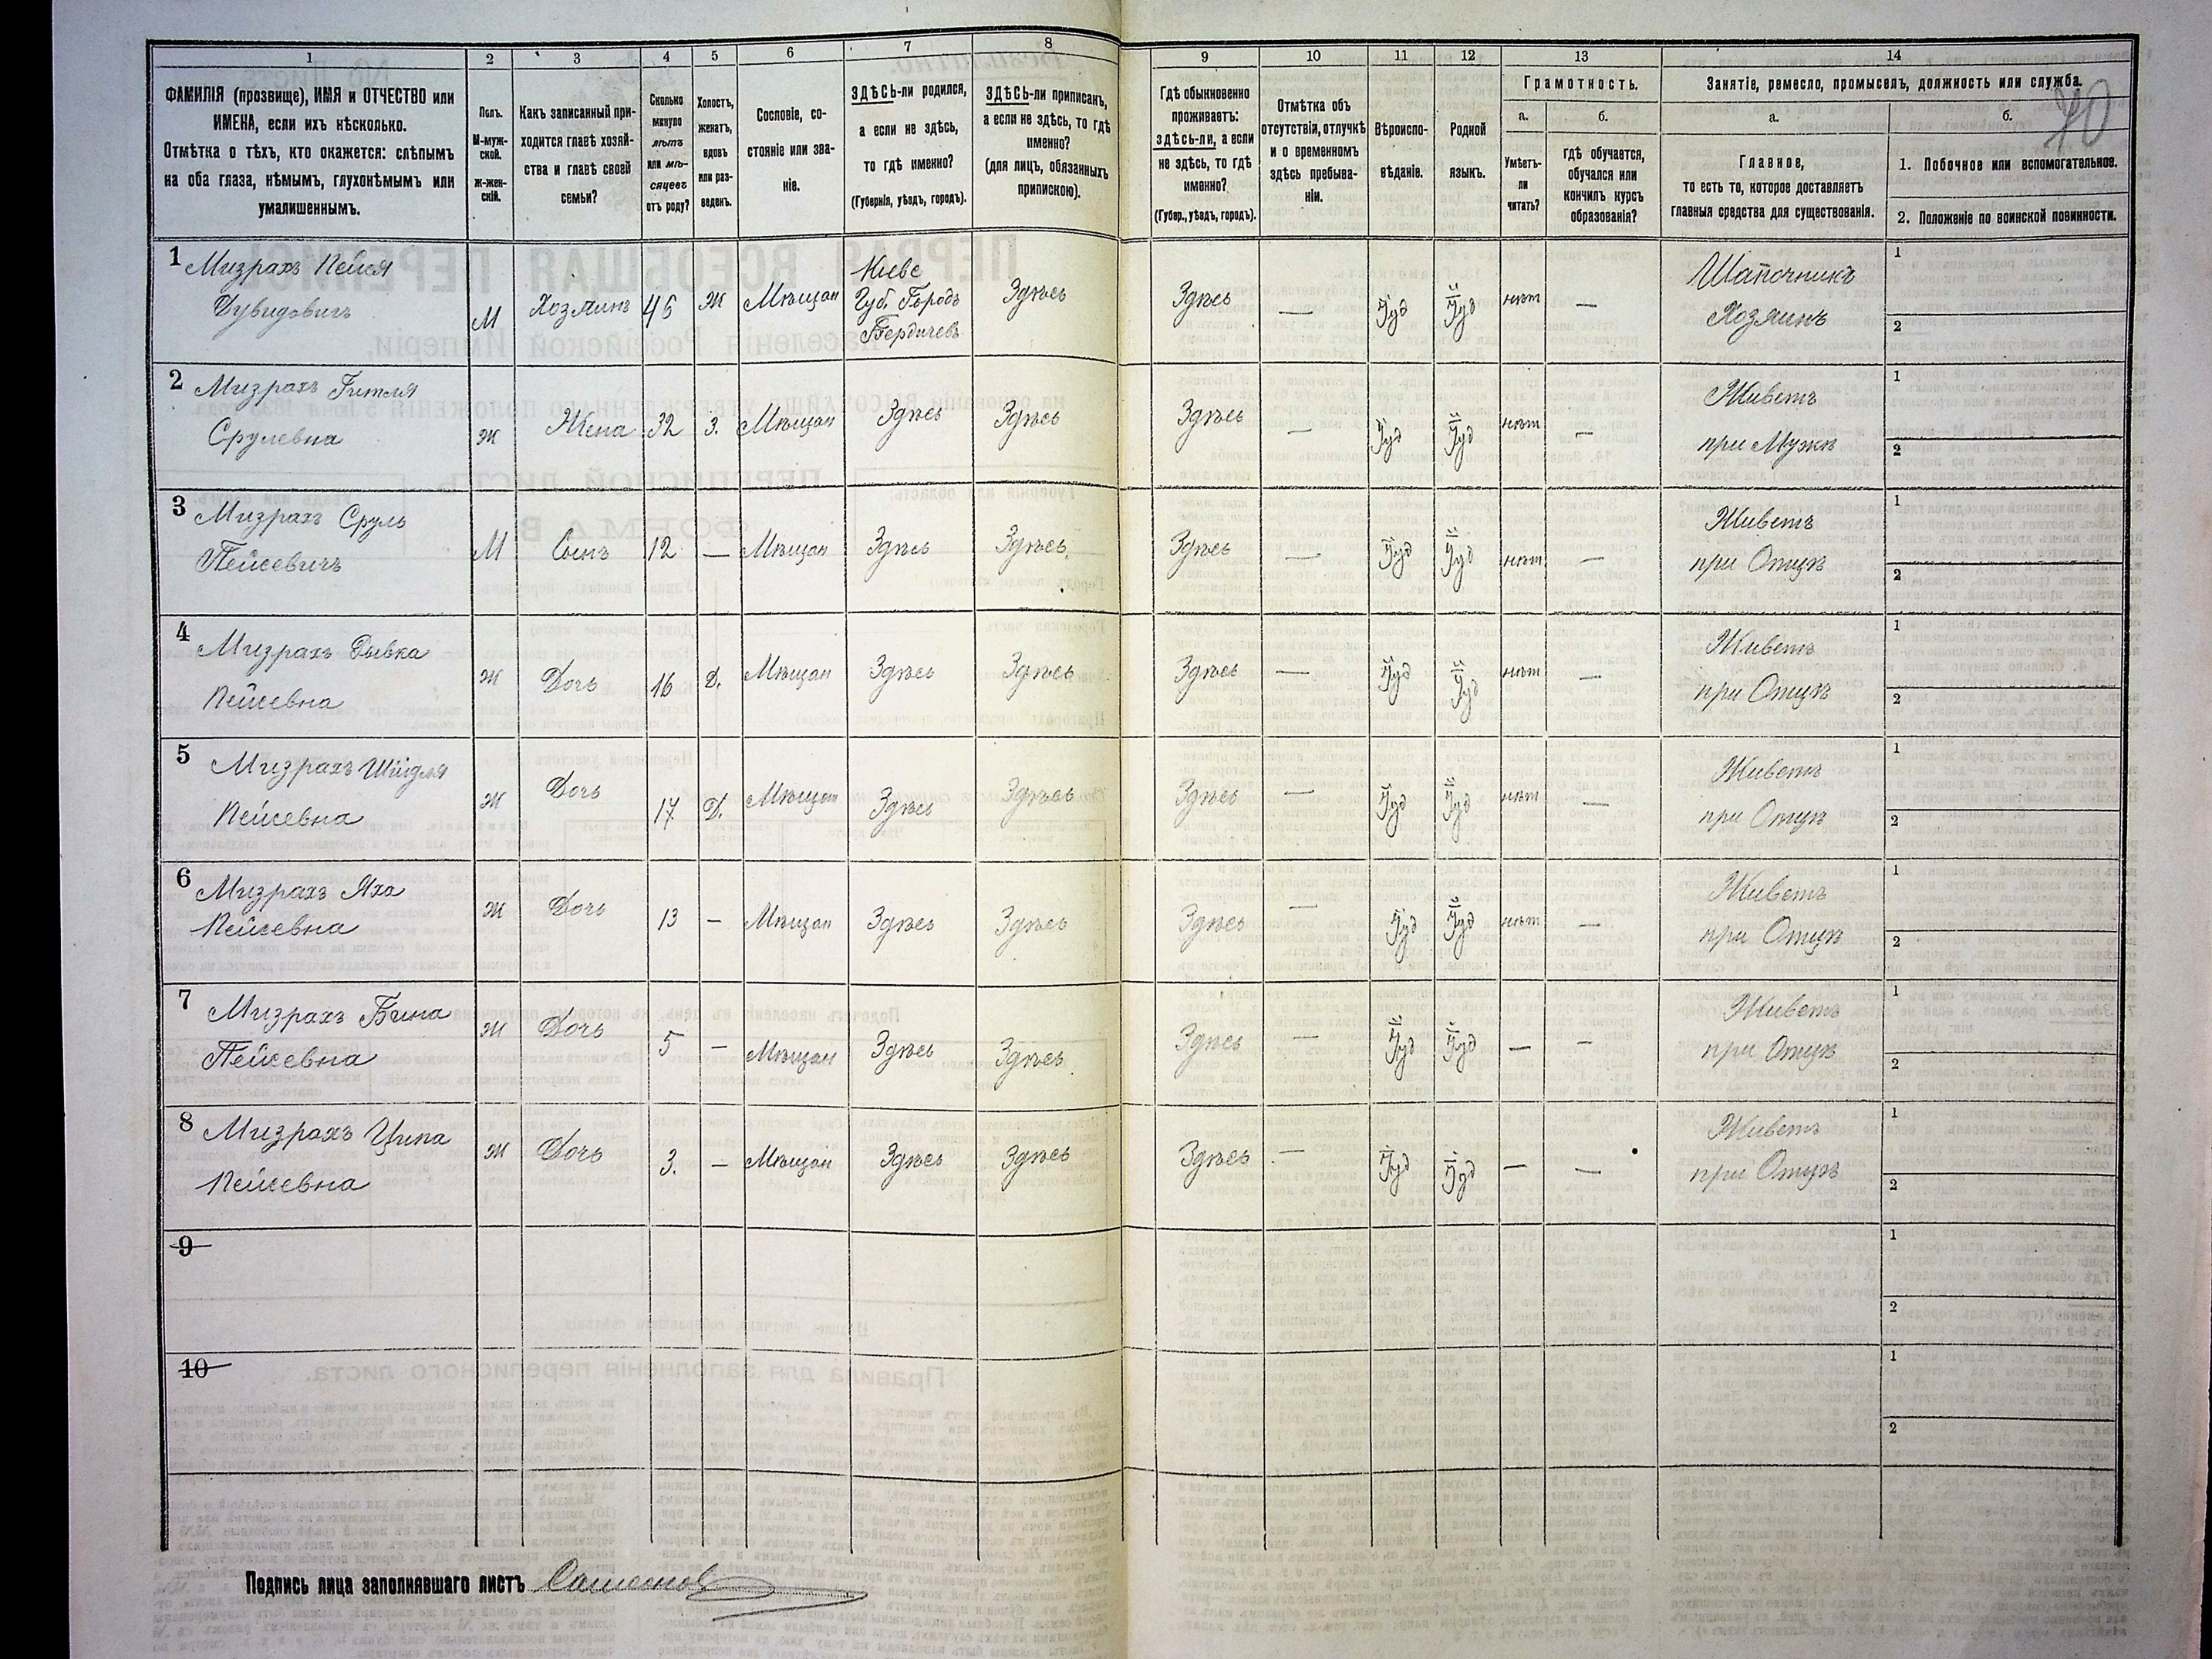 1 2 3 4 5 6 7 8 9 10 11 12 13 14
ФАМИЛІЯ (прозвище), ИМЯ и ОТЧЕСТВО или
ИМЕНА, если ихъ нѣсколько.
Отмѣтка о тѣхъ, кто окажется: слѣпымъ
на оба глаза, нѣмымъ, глухонѣмымъ или
умалишеннымъ.
Полъ.
М-муж-
ской.
ж-жен-
скій.
Какъ записанный при-
ходится главѣ хозяй-
ства и главѣ своей
семьи?
Сколько
минуло
лѣтъ
или мѣ-
сяцевъ
отъ роду?
Холостъ,
женатъ,
вдовъ
или раз-
веденъ.
Сословіе, со-
стояніе или зва-
ніе.
ЗДѢСЬ-ли родился,
а если не здѣсь,
то гдѣ именно?
(Губернія, уѣздъ, городъ).
ЗДѢСЬ-ли приписанъ,
а если не здѣсь, то гдѣ
именно?
(для лицъ, обязанныхъ
припискою).
Гдѣ обыкновенно
проживаетъ:
здѣсь-ли, а если
не здѣсь, то гдѣ
именно?
(Губер., уѣздъ, городъ).
Отмѣтка объ
отсутствіи, отлучкѣ
и о временномъ
здѣсь пребыва-
ніи.
Вѣроиспо-
вѣданіе.
Родной
языкъ.
Грамотность.
а. б.
Умѣетъ-
ли
читать?
гдѣ обучается,
обучался или
кончилъ курсъ
образованія?
Занятіе, ремесло, промыселъ, должность или служба.
70
а. б.
Главное,
то есть то, которое доставляетъ
главныя средства для существованія.
1. Побочное или вспомогательное.
2. Положеніе по воинской повинности.
1 Мизрахъ Пейся
Дувидовичъ
М Хозяинъ 45 Ж Мѣщан
Киевс
Губ. Городъ
Бердичевъ
Здѣсь Здѣсь — Іуд Іуд нѣт —
Шапочникъ
Хозяинъ
1
2
2 Мизрахъ Гитля
Срулевна
ж Жена 32 З. Мѣщан Здѣсь Здѣсь Здѣсь — Іуд Іуд нѣт —
Живетъ
при Мужѣ
1
2
3 Мизрахъ Сруль
Пейсевичъ
М Сынъ 12 — Мѣщан Здѣсь Здѣсь Здѣсь — Іуд Іуд нѣт —
Живетъ
при Отцѣ
1
2
4 Мизрахъ Дывка
Пейсевна
ж Дочь 16 Д. Мѣщан Здѣсь Здѣсь Здѣсь — Іуд Іуд нѣт —
Живетъ
при Отцѣ
1
2
5 Мизрахъ Шйдля
Пейсевна
ж Дочь 17 Д. Мѣщан Здѣсь Здѣсь Здѣсь — Іуд Іуд нѣт —
Живетъ
при Отцѣ
1
2
6 Мизрахъ Яха
Пейсевна
ж Дочь 13 — Мѣщан Здѣсь Здѣсь Здѣсь — Іуд Іуд нѣт —
Живетъ
при Отцѣ
1
2
7 Мизрахъ Бина
Пейсевна
ж Дочь 5 — Мѣщан Здѣсь Здѣсь Здѣсь — Іуд Іуд — —
Живетъ
при Отцѣ
1
2
8 Мизрахъ Ципа
Пейсевна
ж Дочь 3. — Мѣщан Здѣсь Здѣсь Здѣсь — Іуд Іуд — —
Живетъ
при Отцѣ
1
2
9
1
2
10
1
2
Подпись лица заполнявшаго листъ